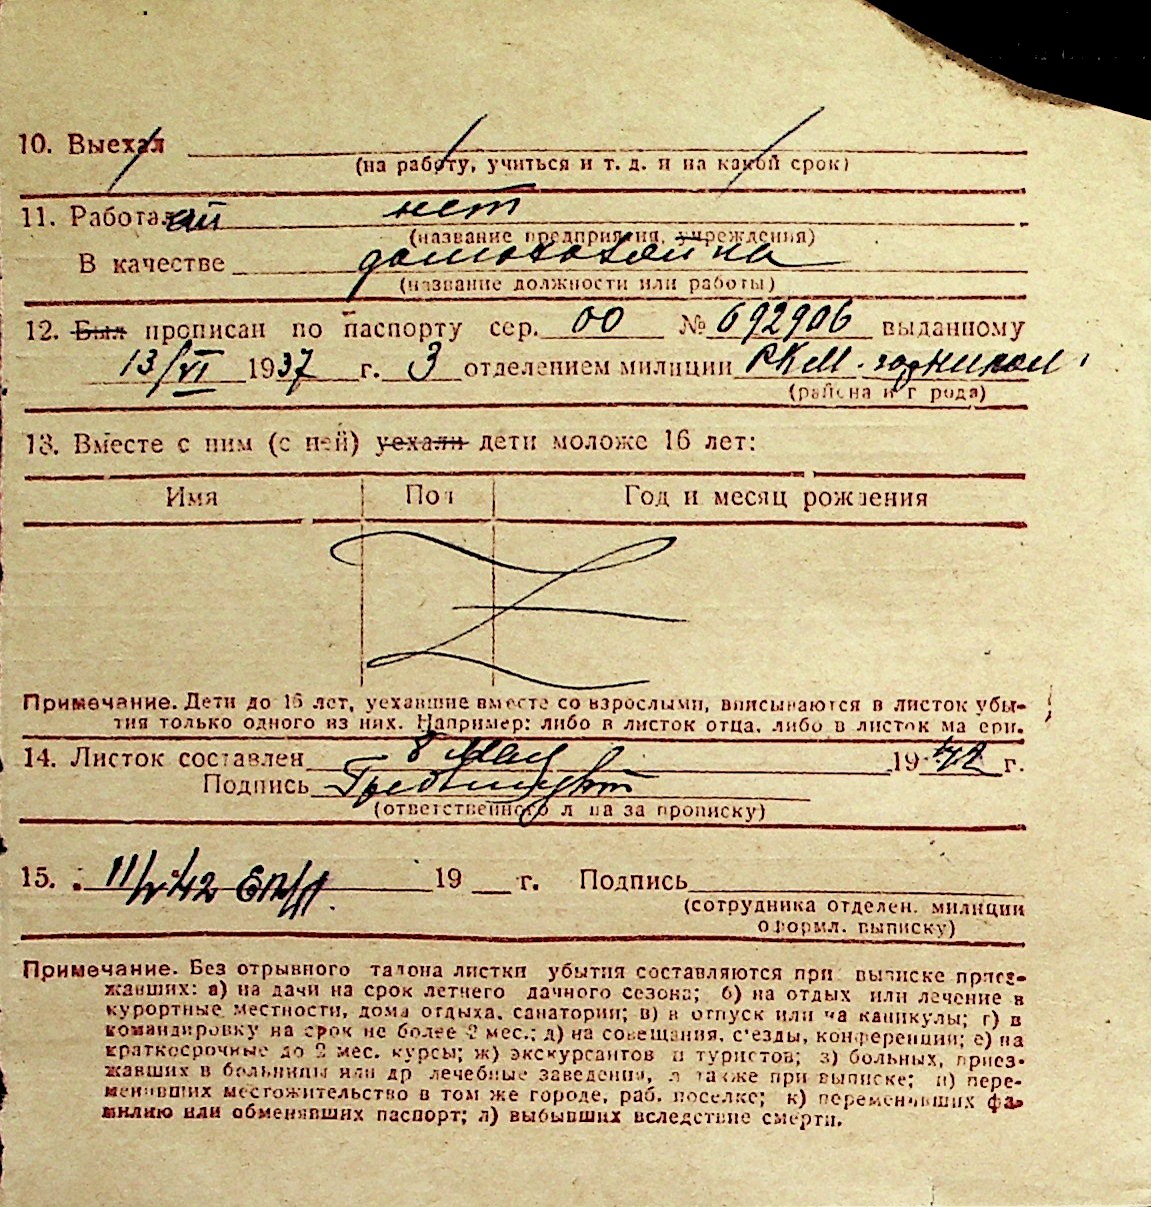 10. Выехал
(на работу, учиться и т. д. и на какой срок)
11. Работал нет
(название предприятия, учреждения)
В качестве домохозяйка
(название должности или работы)
12. Был прописан по паспорту сер. 00 № 692906 выданному
13/VI 1937 г. 3 отделением милиции РКМ.
(района и города)
13. Вместе с ним (с ней) уехали дети моложе 16 лет:
Имя Пол Год и месяц рождения
Примечание. Дети до 16 лет, уехавшие вместе со взрослыми, вписываются в листок убы-
тия только одного из них. Например: либо в листок отца, либо в листок матери.
14. Листок составлен 8 мая 1942 г.
Подпись
(ответственного лица за прописку)
15. 11/V-42 19 г. Подпись
(сотрудника отделен. милиции
оформл. выписку)
Примечание. Без отрывного талона листки убытия составляются при выписке приез-
жавших: а) на дачи на срок летнего дачного сезона; б) на отдых или лечение в
курортные местности, дома отдыха, санатории; в) в отпуск или на каникулы; г) в
командировку на срок не более 2 мес.; д) на совещания, с'езды, конференции; е) на
краткосрочные до 2 мес. курсы; ж) экскурсантов и туристов; з) больных, приез-
жавших в больницы или др лечебные заведения, а также при выписке; и) пере-
менивших местожительство в том же городе, раб. поселке; к) переменивших фа-
милию или обменявших паспорт; л) выбывших вследствие смерти.